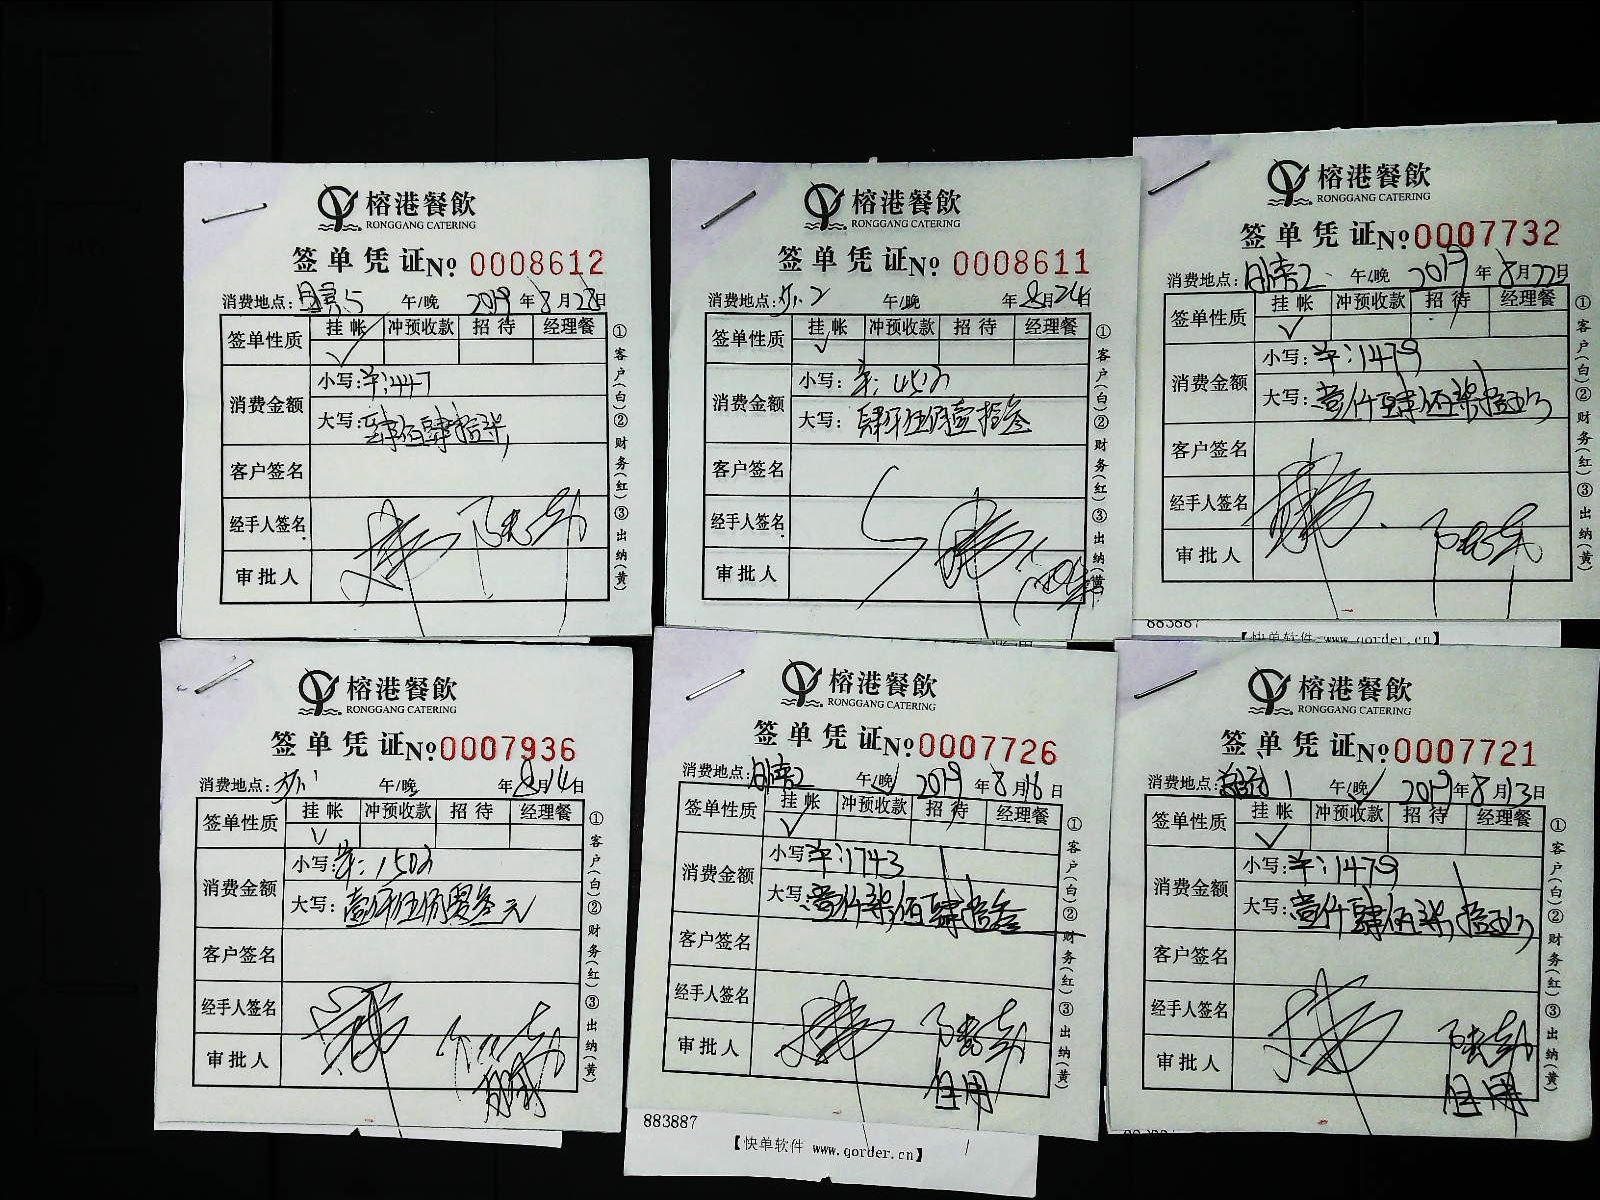 榕港餐飲
RONGGANG CATERING
签单凭证 No 0008612
消费地点: 5 午/晚 2019年8月28日
签单性质 挂帐 冲预收款 招待 经理餐
✓
消费金额 小写:羊:447
大写:肆佰肆拾柒
客户签名
经手人签名
审批人
①客户(白)②财务(红)③出纳(黄)
榕港餐飲
RONGGANG CATERING
签单凭证 No 0008611
消费地点: 2 午/晚 年8月24日
签单性质 挂帐 冲预收款 招待 经理餐
✓
消费金额 小写:羊:4513
大写:肆仟伍佰壹拾叁
客户签名
经手人签名
审批人
①客户(白)②财务(红)③出纳(黄)
榕港餐飲
RONGGANG CATERING
签单凭证 No 0007732
消费地点: 2 午/晚 2019年8月22日
签单性质 挂帐 冲预收款 招待 经理餐
✓
消费金额 小写:羊:1479
大写:壹仟肆佰柒拾玖
客户签名
经手人签名
审批人
①客户(白)②财务(红)③出纳(黄)
883887
【快单软件 www.gorder.cn】
榕港餐飲
RONGGANG CATERING
签单凭证 No 0007936
消费地点: 午/晚 年8月14日
签单性质 挂帐 冲预收款 招待 经理餐
✓
消费金额 小写:羊:1503
大写:壹仟伍佰零叁元
客户签名
经手人签名
审批人
①客户(白)②财务(红)③出纳(黄)
榕港餐飲
RONGGANG CATERING
签单凭证 No 0007726
消费地点: 2 午/晚 2019年8月16日
签单性质 挂帐 冲预收款 招待 经理餐
✓
消费金额 小写:羊:1743
大写:壹仟柒佰肆拾叁
客户签名
经手人签名
审批人
自用
①客户(白)②财务(红)③出纳(黄)
883887
【快单软件 www.gorder.cn】
榕港餐飲
RONGGANG CATERING
签单凭证 No 0007721
消费地点: 1 午/晚 2019年8月13日
签单性质 挂帐 冲预收款 招待 经理餐
✓
消费金额 小写:羊:1479
大写:壹仟肆佰柒拾玖
客户签名
经手人签名
审批人
自用
①客户(白)②财务(红)③出纳(黄)